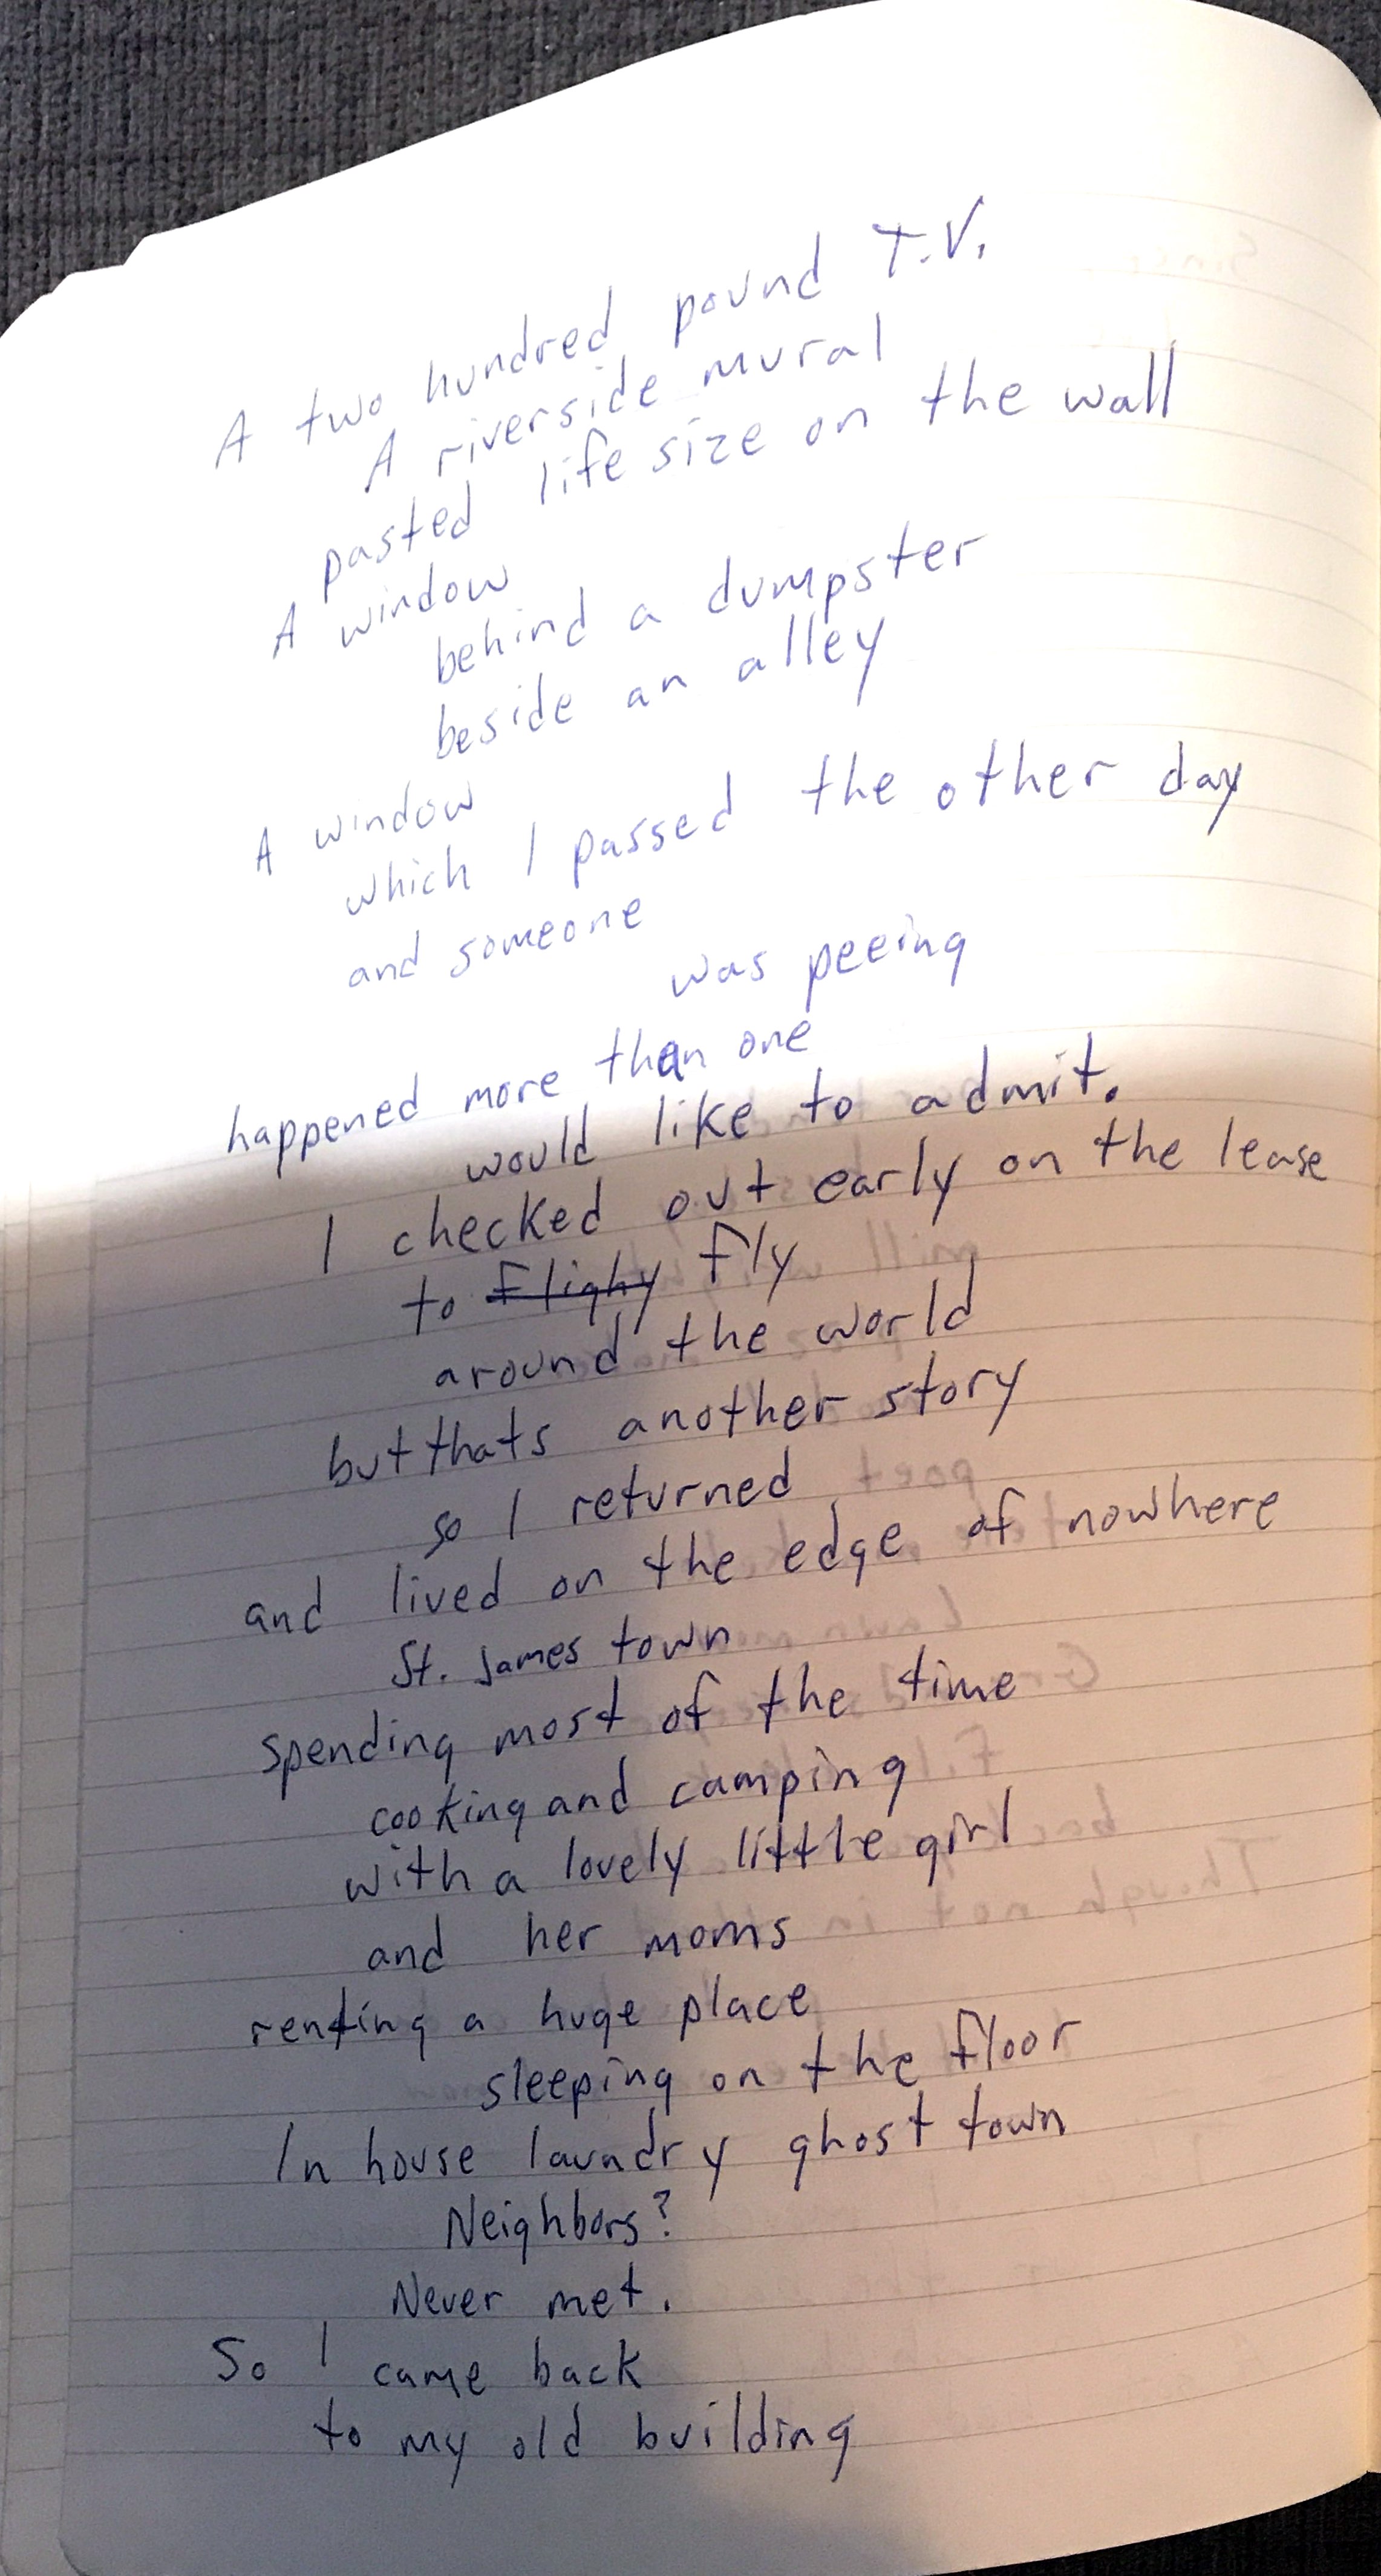 A two hundred pound T.V.
A riverside mural
pasted life size on the wall
A window
behind a dumpster
beside an alley
A window
which I passed the other day
and someone
was peeing
happened more than one
would like to admit.
I checked out early on the lease
to flighy fly
around the world
but thats another story
so I returned
and lived on the edge of nowhere
St. James town
spending most of the time
cooking and camping
with a lovely little girl
and her moms
renting a huge place
sleeping on the floor
In house laundry ghost town
Neighbors?
Never met.
So I came back
to my old building